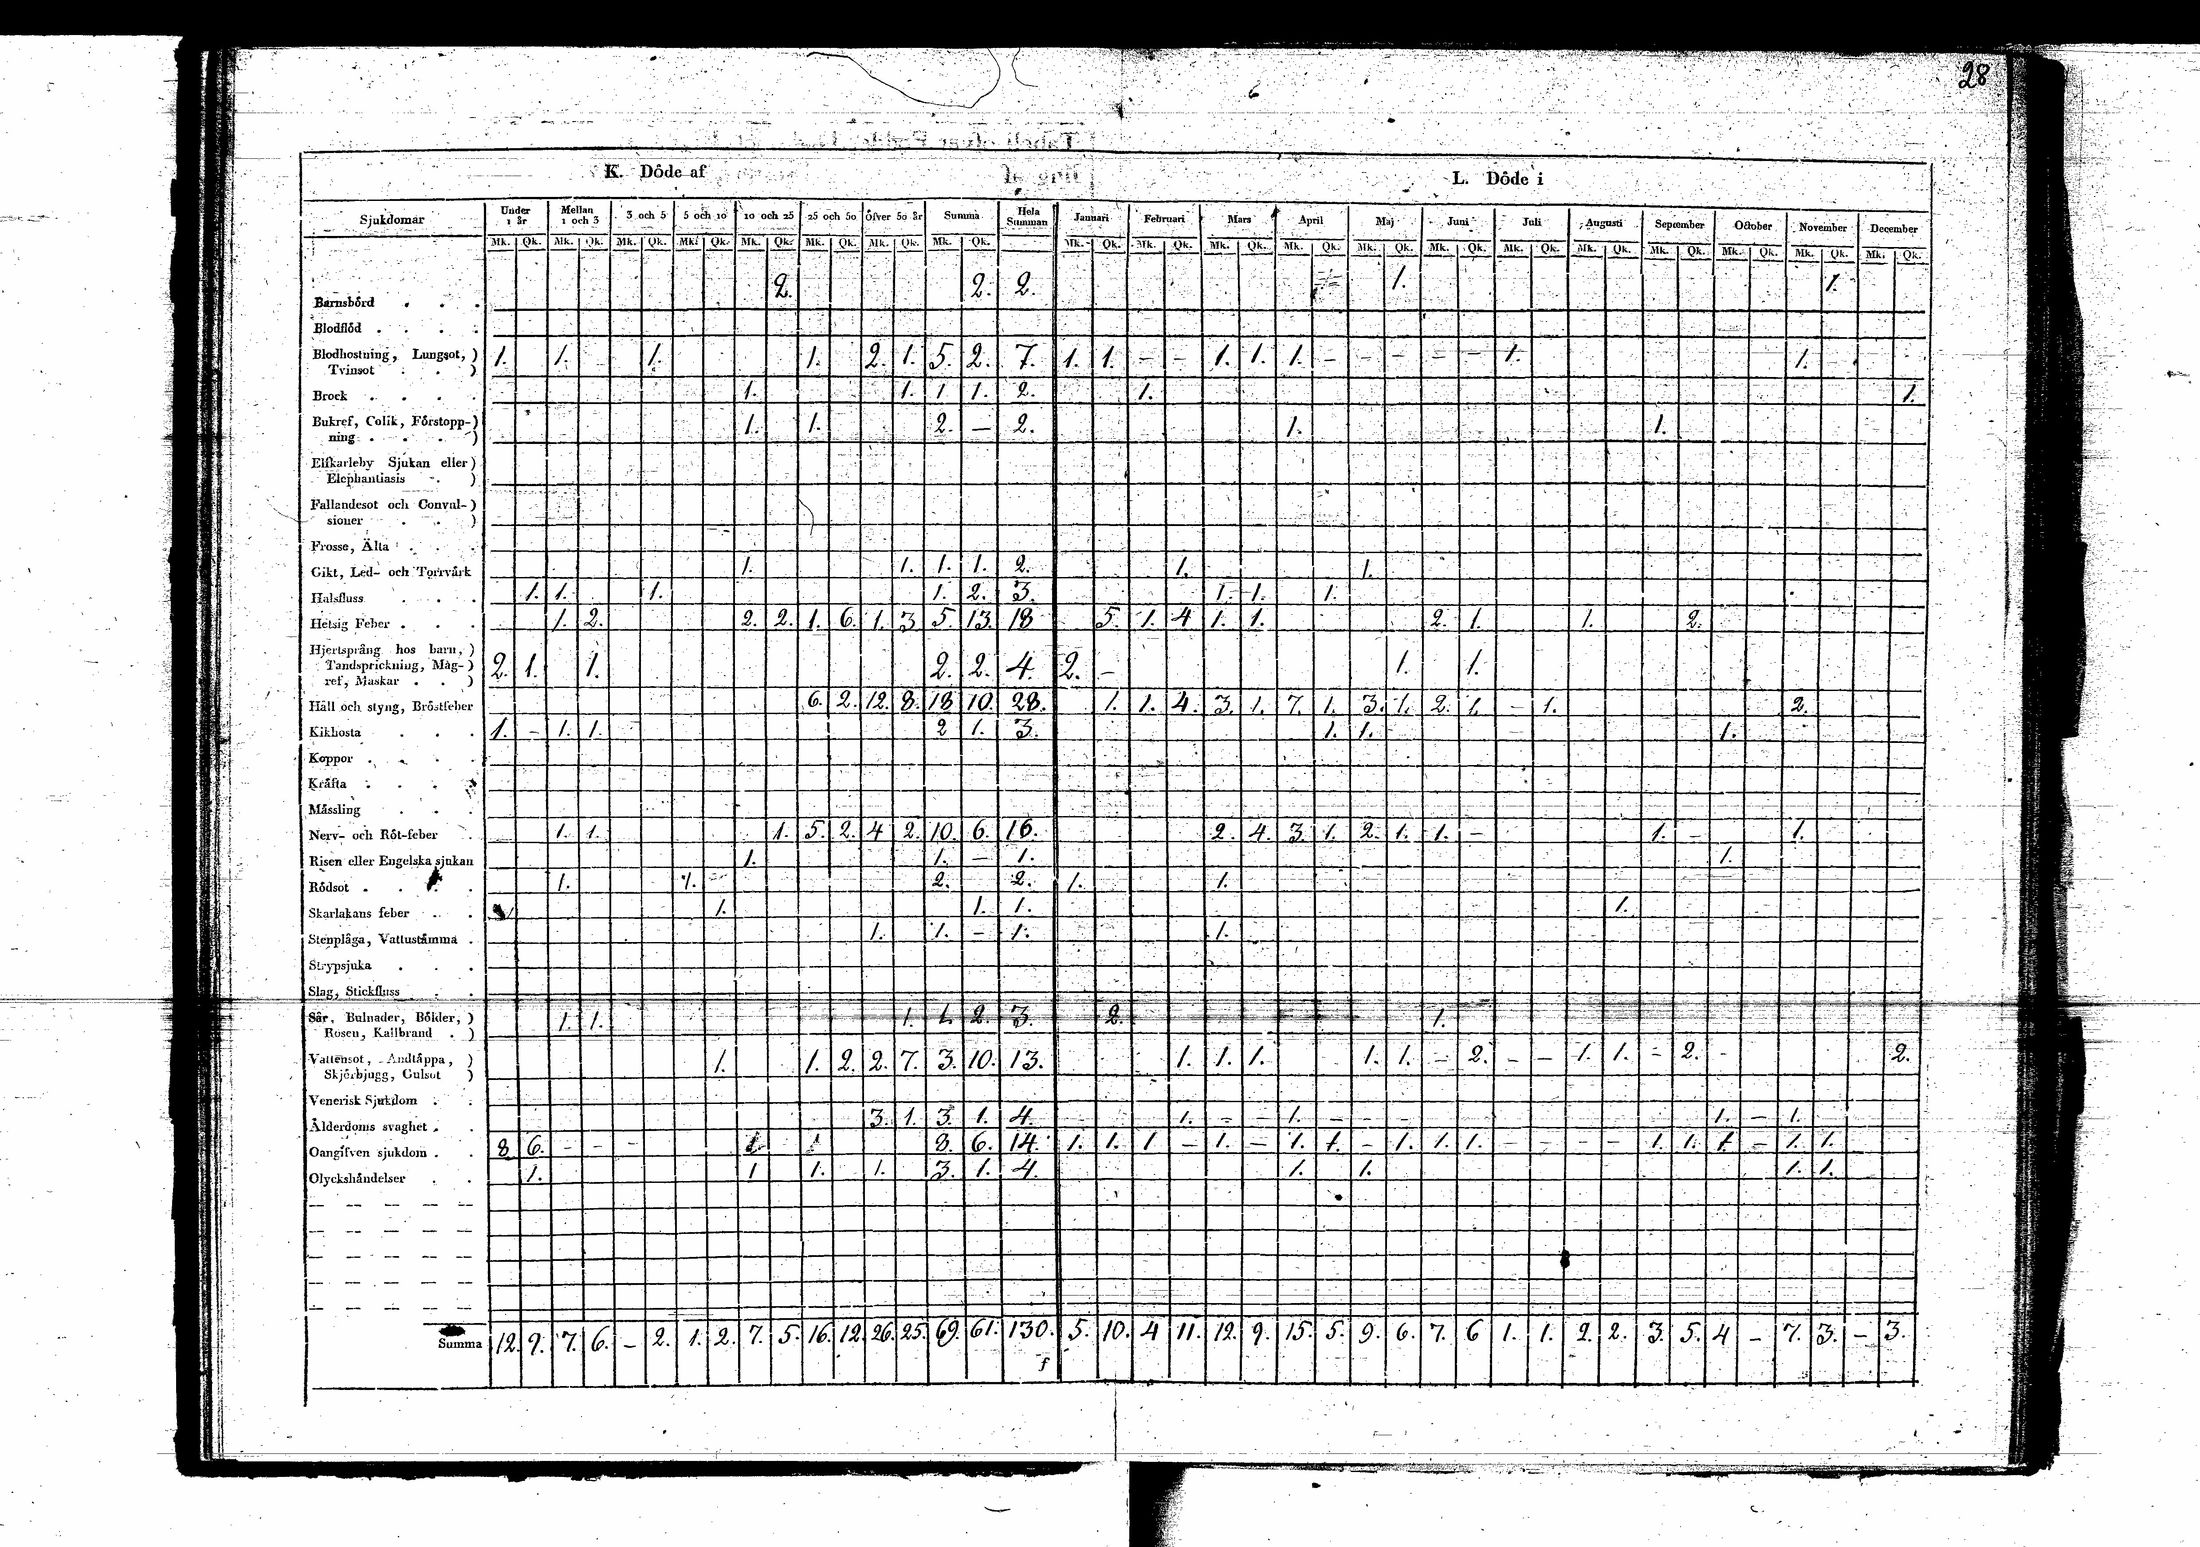 28
6
K. Döde af
L. Döde i
Sjukdomar Under 1 år Mellan 1 och 3 3 och 5 5 och 10 10 och 25 25 och 50 Öfver 50 år Summa Hela Summan Januari Februari Mars April Maj Juni Juli Augusti September October November December
Mk. Qk. Mk. Qk. Mk. Qk. Mk. Qk. Mk. Qk. Mk. Qk. Mk. Qk. Mk. Qk. Mk. Qk. Mk. Qk. Mk. Qk. Mk. Qk. Mk. Qk. Mk. Qk. Mk. Qk. Mk. Qk. Mk. Qk. Mk. Qk. Mk. Qk. Mk. Qk.
Barnsbörd . . . 2. 2. 2. 1. 1.
Blodflöd . . . .
Blodhostning, Lungsot, )
Tvinsot . . ) 1. 1. 1. 1. 2. 1. 5. 2. 7. 1. 1. – – 1. 1. 1. – – – – – 1. 1.
Brock . . . . 1. 1. 1 1. 2. 1. 1.
Bukref, Colik, Förstopp-)
ning . . . ) 1. 1. 2. – 2. 1. 1.
Elfkarleby Sjukan eller )
Elephantiasis . )
Fallandesot och Convul-)
sioner . . )
Frosse, Älta . . .
Gikt, Led- och Torrvärk 1. 1. 1. 1. 2. 1. 1.
Halsfluss . . . 1. 1. 1. 1. 2. 3. 1. 1. 1.
Hetsig Feber . . . 1. 2. 2. 2. 1. 6. 1. 3 5. 13. 18 5. 1. 4 1. 1. 2. 1. 1. 2.
Hjertsprång hos barn, )
Tandsprickning, Mag-)
ref, Maskar . . ) 2. 1. 1. 2. 2. 4. 2. – 1. 1.
Håll och styng, Bröstfeber 6. 2. 12. 8. 18 10. 28. 1. 1. 4. 3. 1. 7. 1. 3. 1. 2. 1. – 1. 2.
Kikhosta . . . 1. – 1. 1. 2 1. 3. 1. 1. 1.
Koppor . . . .
Kräfta . . . .
Mässling . . .
Nerv- och Röt-feber . 1. 1. 1. 5. 2. 4 2. 10. 6. 16. 2. 4. 3. 1. 2. 1. 1. – 1. – 1.
Risen eller Engelska sjukan 1. 1. – 1. 1.
Rödsot . . . . 1. 1. 2. 2. 1. 1.
Skarlakans feber . . 1. 1. 1. 1.
Stenplåga, Vattustämma . 1. 1. – 1. 1.
Strypsjuka . . .
Slag, Stickfluss . .
Sår, Bulnader, Bölder, )
Rosen, Kallbrand . ) 1. 1. 1. 1. 2. 3. 2. 1.
Vattensot, Andtäppa, )
Skjörbjugg, Gulsot ) 1. 1. 2. 2. 7. 3. 10. 13. 1. 1. 1. 1. 1. – 2. – – 1. 1. – 2. – 2.
Venerisk Sjukdom . .
Ålderdoms svaghet . . 3. 1. 3. 1. 4. 1. – – 1. – – – 1. – 1.
Oangifven sjukdom . . 8 6. – – – 8. 6. 14. 1. 1. 1 – 1. – 1. 1. – 1. 1. 1. – – – – 1. 1. 1. – 1. 1.
Olyckshändelser . . 1. 1 1. 1. 3. 1. 4. 1. 1. 1. 1.
Summa 12. 9. 7. 6. – 2. 1. 2. 7. 5. 16. 12. 26. 25. 69. 61. 130. 5. 10. 4 11. 12. 9. 15. 5. 9. 6. 7. 6 1. 1. 2. 2. 3. 5. 4 – 7. 3. – 3.